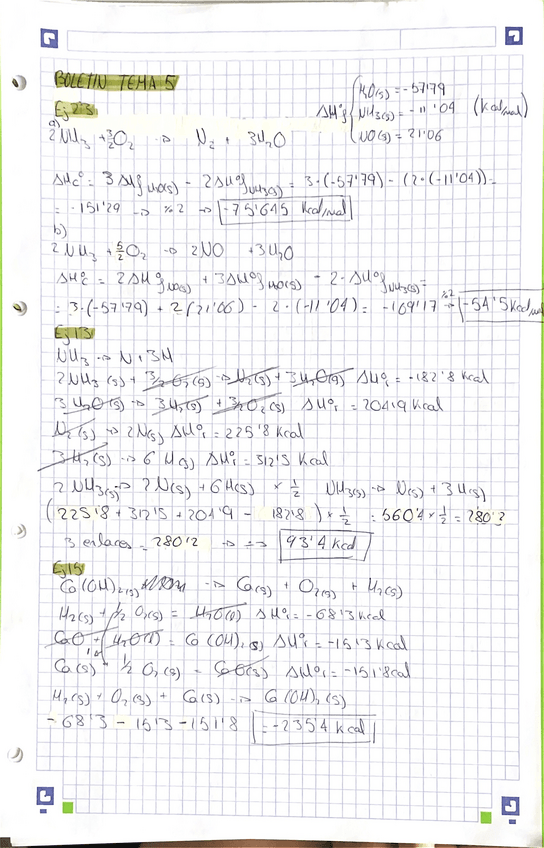 BOLETIN TEMA 5
Ej 23
ΔHºf { H₂O(g) = -57'79
NH₃(g) = -11'04 (Kcal/mol)
NO(g) = 21'06
a)
2NH₃ + 3/2 O₂ → N₂ + 3H₂O
ΔHcº = 3ΔHºf H₂O(g) - 2ΔHºf NH₃(g) = 3·(-57'79) - (2·(-11'04)) =
= -151'29 → %2 → -75'645 Kcal/mol
b)
2NH₃ + 5/2 O₂ → 2NO + 3H₂O
ΔHºc = 2ΔHºf NO(g) + 3ΔHºf H₂O(g) - 2·ΔHºf NH₃(g) =
= 3·(-57'79) + 2(21'06) - 2·(-11'04) = -109'17 %2 → -54'5 Kcal/mol
Ej 13
NH₃ → N + 3H
2NH₃(g) + 3/2 O₂(g) → N₂(g) + 3H₂O(g) ΔHº₁ = -182'8 Kcal
3H₂O(g) → 3H₂(g) + 3/2 O₂(g) ΔHº₁ = 204'9 Kcal
N₂(g) → 2N(g) ΔHº₁ = 225'8 Kcal
3H₂(g) → 6H(g) ΔHº₁ = 312'5 Kcal
2NH₃(g) → 2N(g) + 6H(g) × 1/2 NH₃(g) → N(g) + 3H(g)
(225'8 + 312'5 + 204'9 - 182'8) × 1/2 = 560'4 × 1/2 = 280'2
3 enlaces = 280'2 → => 93'4 Kcal
Ej 15
Ca(OH)₂(s) → Ca(s) + O₂(g) + H₂(g)
H₂(g) + 1/2 O₂(g) = H₂O(l) ΔHº₁ = -68'3 Kcal
CaO + H₂O(l) = Ca(OH)₂(s) ΔHº₁ = -15'3 Kcal
Ca(s) + 1/2 O₂(g) = CaO(s) ΔHº₁ = -151'8cal
H₂(g) + O₂(g) + Ca(s) → Ca(OH)₂(s)
-68'3 - 15'3 - 151'8 = -235'4 Kcal